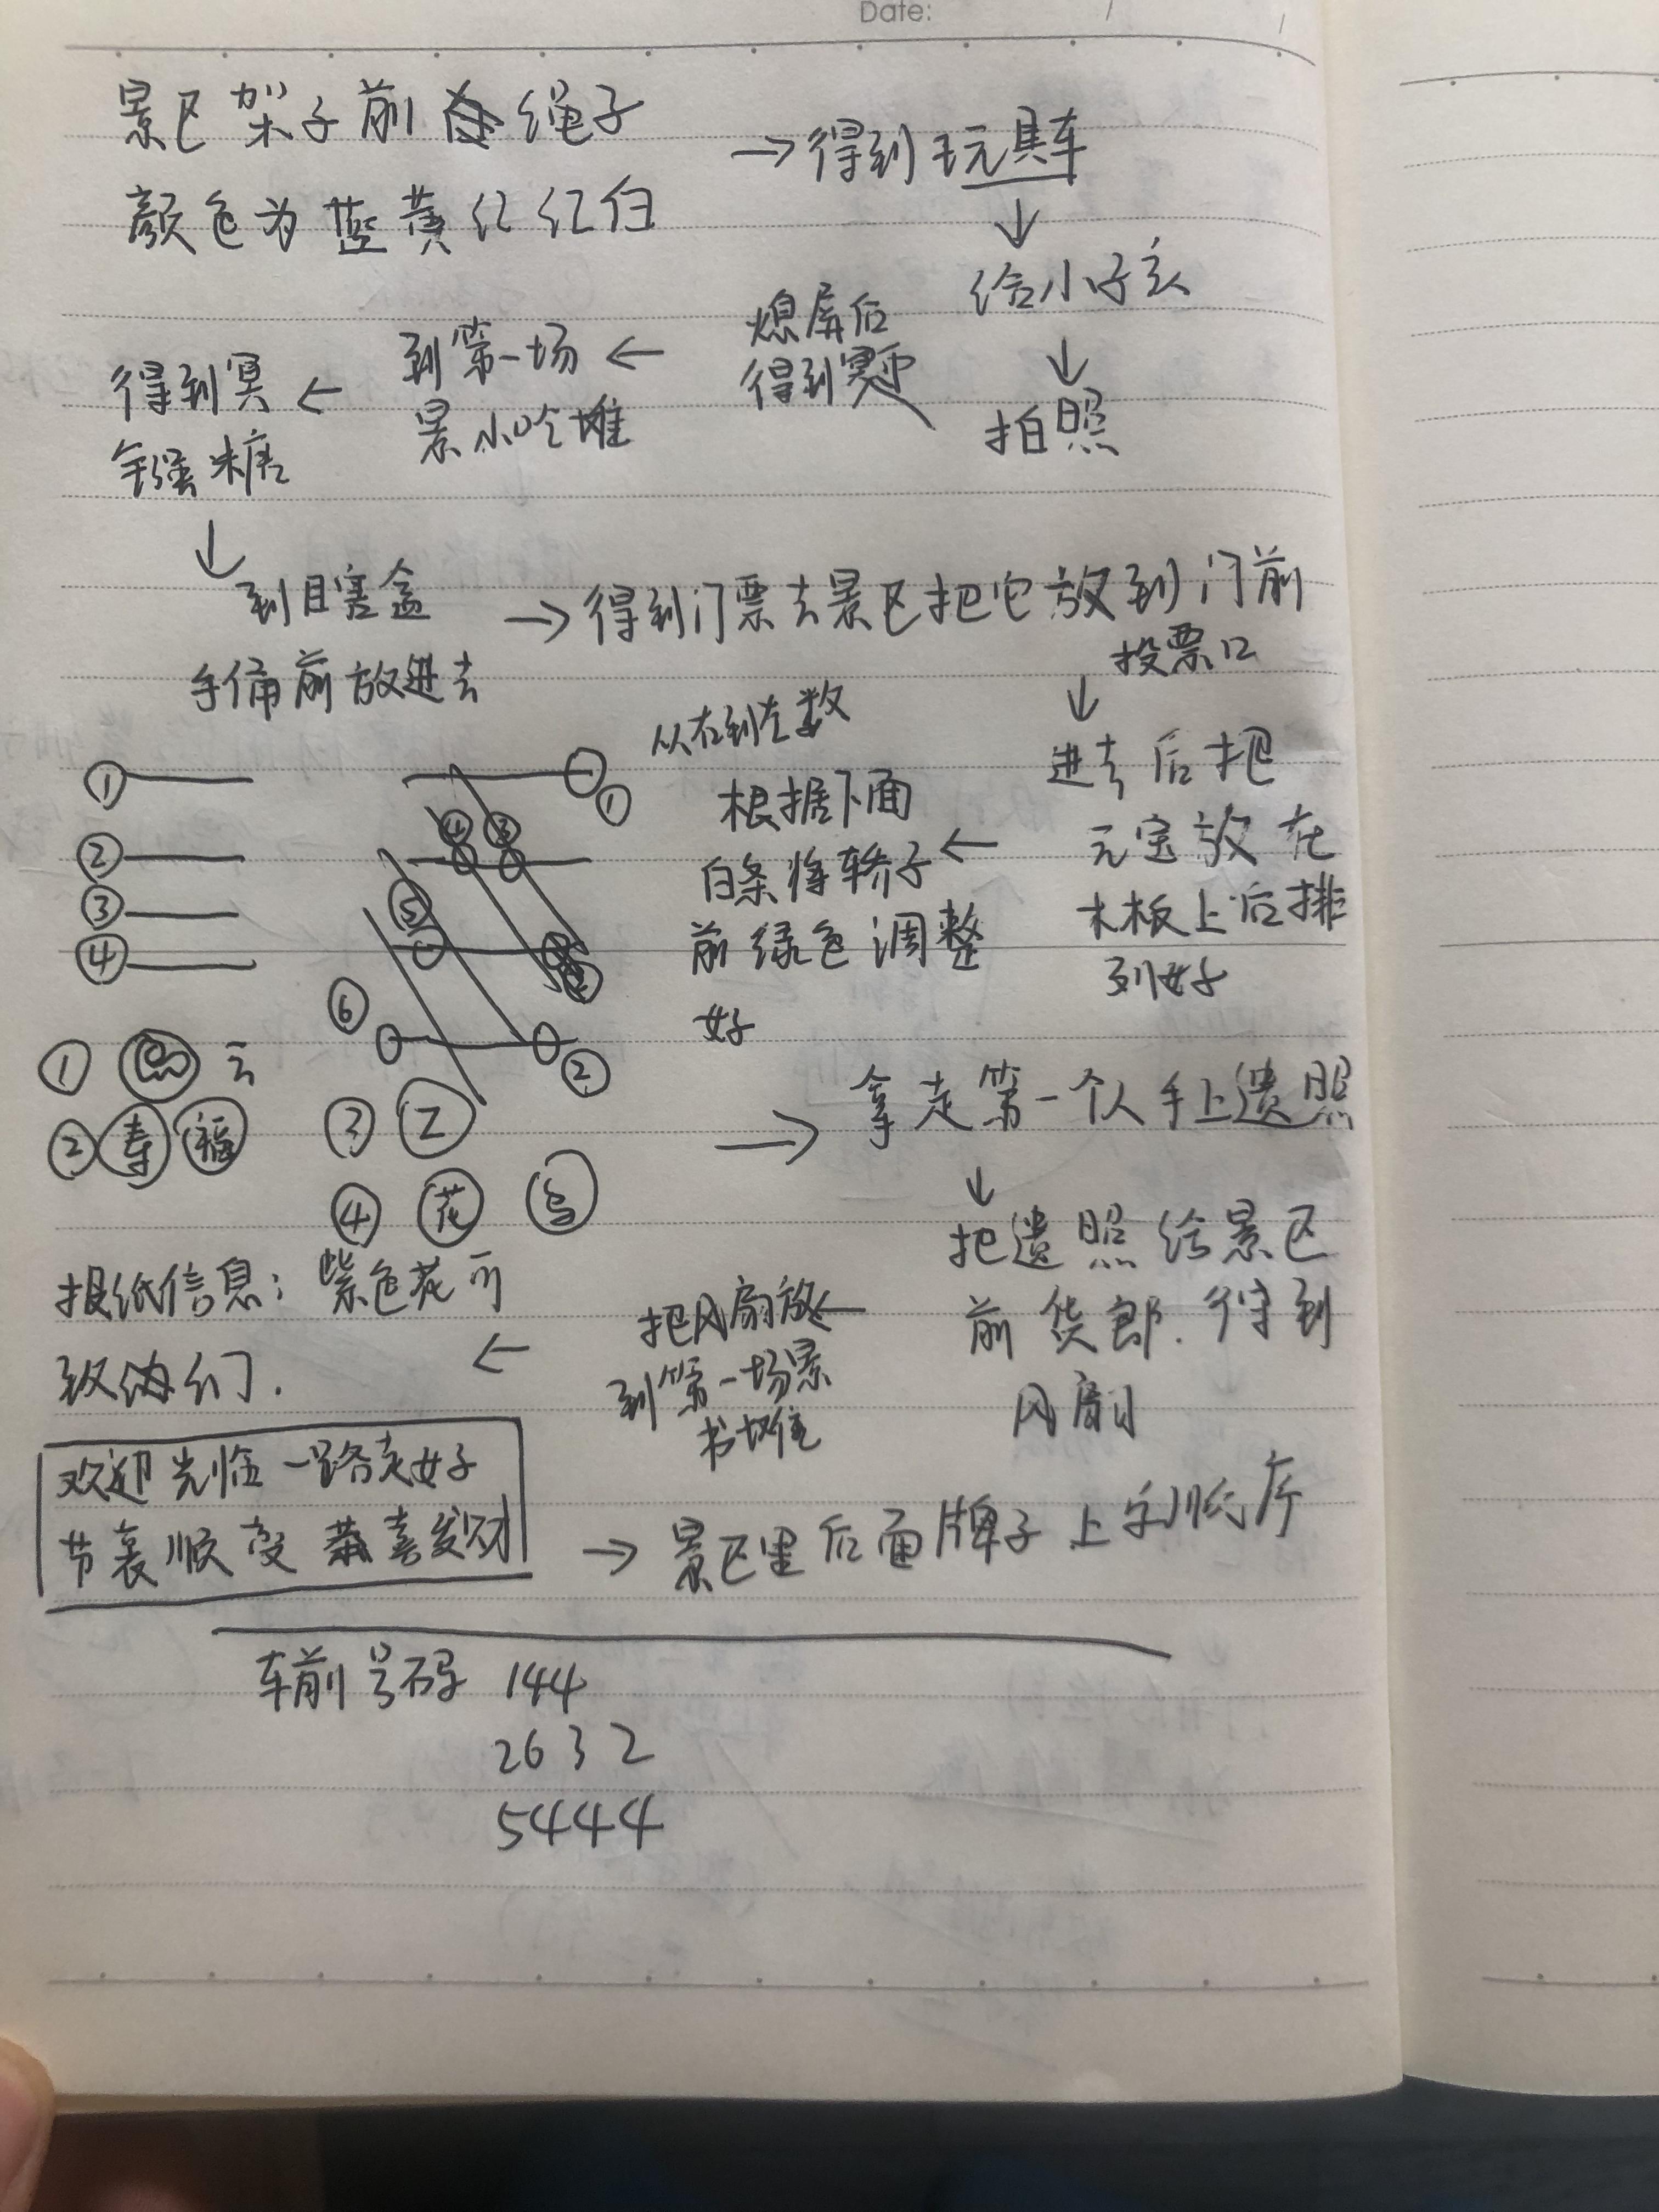 Date: / /
景区架子前绳子
颜色为蓝黄红红白
→得到玩具车
↓
给小孩
↓
拍照
熄屏后
得到
← 到第一场
景小吃堆
← 得到冥
镪糖
↓
到目害盒
手俑前放进去
→得到门票去景区把它放到门前
投票口
↓
进去后把
元宝放在
木板上后排
列好
←
从右到左数
根据下面
白条将轿子
前绿色调整
好
①
②
③
④
① ① ④ ③ ⑤ ⑥ ②
① 云
② 寿 福
③ 乙
④ 花
→ 拿走第一个人手上遗照
↓
把遗照给景区
前货郎.得到
风扇
←
把风扇放
到第一场景
书堆
←
报纸信息:紫色花可
们.
欢迎光临一路走好
节哀顺变 恭喜发财
→ 景区里后面牌子上字顺序
车前号码 144
2632
5444